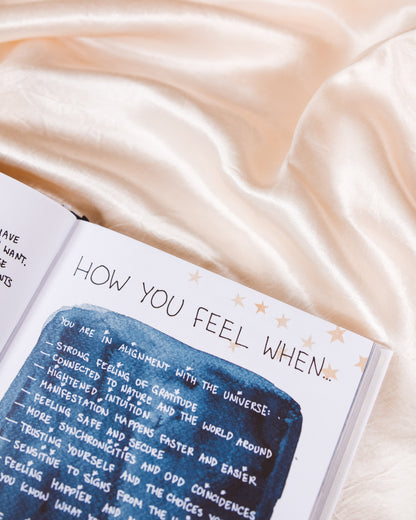 HAVE
WANT.
SE
NTS
HOW YOU FEEL WHEN...
YOU ARE IN ALIGNMENT WITH THE UNIVERSE:
— STRONG FEELING OF GRATITUDE
— CONNECTED TO NATURE AND THE WORLD AROUND
— HIGHTENED INTUITION
— MANIFESTATION HAPPENS FASTER AND EASIER
— FEELING SAFE AND SECURE
— MORE SYNCHRONICITIES AND ODD COINCIDENCES
— TRUSTING YOURSELF AND THE CHOICES YO
— SENSITIVE TO SIGNS FROM THE
— FEELING HAPPIER AND M
YOU KNOW WHAT